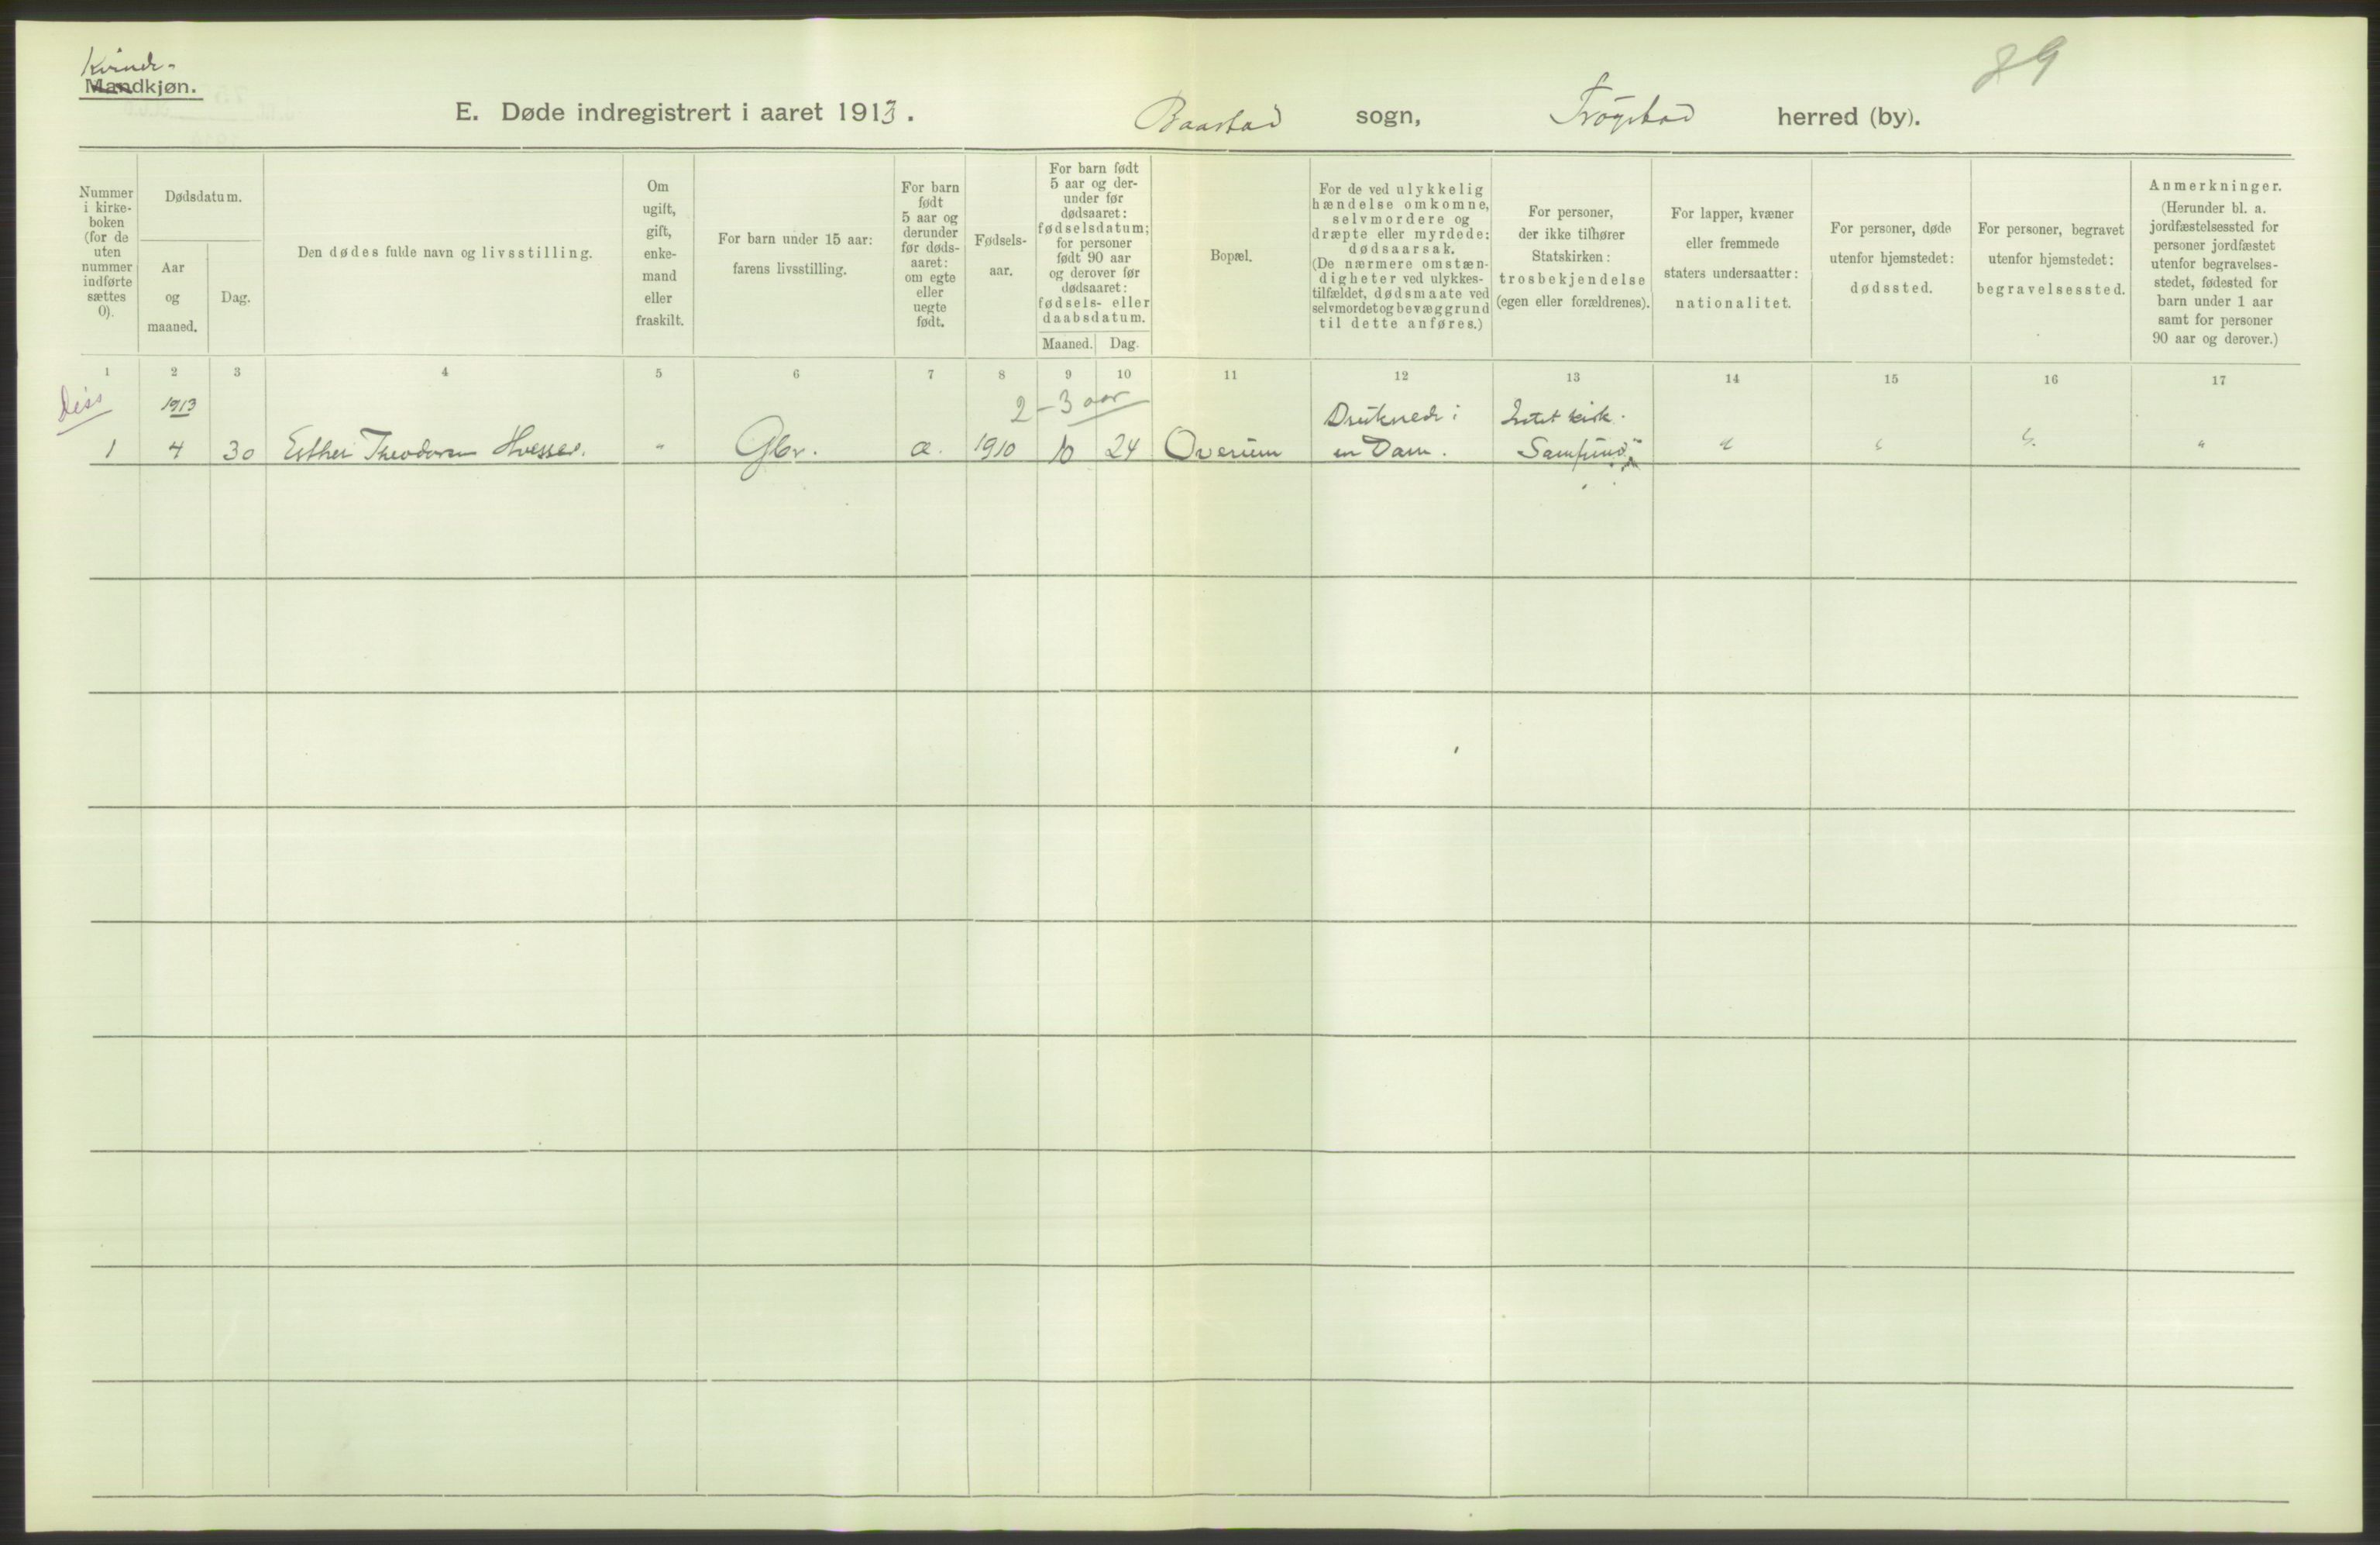 Kvinde-
Mandkjøn.
89
E. Døde indregistrert i aaret 1913. Baastad sogn, Trøgstad herred (by).
Nummer
i kirke-
boken
(for de
uten
nummer
indførte
sættes
0).
Dødsdatum.
Aar
og
maaned.
Dag.
Den dødes fulde navn og livsstilling.
Om
ugift,
gift,
enke-
mand
eller
fraskilt.
For barn under 15 aar:
farens livsstilling.
For barn
født
5 aar og
derunder
før døds-
aaret:
om egte
eller
uegte
født.
Fødsels-
aar.
For barn født
5 aar og der-
under før
dødsaaret:
fødselsdatum;
for personer
født 90 aar
og derover før
dødsaaret:
fødsels- eller
daabsdatum.
Maaned. Dag.
Bopæl.
For de ved ulykkelig
hændelse omkomne,
selvmordere og
dræpte eller myrdede:
dødsaarsak.
(De nærmere omstæn-
digheter ved ulykkes-
tilfældet, dødsmaate ved
selvmordet og bevæggrund
til dette anføres.)
For personer,
der ikke tilhører
Statskirken:
trosbekjendelse
(egen eller forældrenes).
For lapper, kvæner
eller fremmede
staters undersaatter:
nationalitet.
For personer, døde
utenfor hjemstedet:
dødssted.
For personer, begravet
utenfor hjemstedet:
begravelsessted.
Anmerkninger.
(Herunder bl. a.
jordfæstelsessted for
personer jordfæstet
utenfor begravelses-
stedet, fødested for
barn under 1 aar
samt for personer
90 aar og derover.)
1 2 3 4 5 6 7 8 9 10 11 12 13 14 15 16 17
Diss 1913 2-3 aar Druknede i Intet kirk.
1 4 30 Esther Theodora Hvesser. " Gbr. æ. 1910 10 24 Overum en Dam. Samfund. " " " "